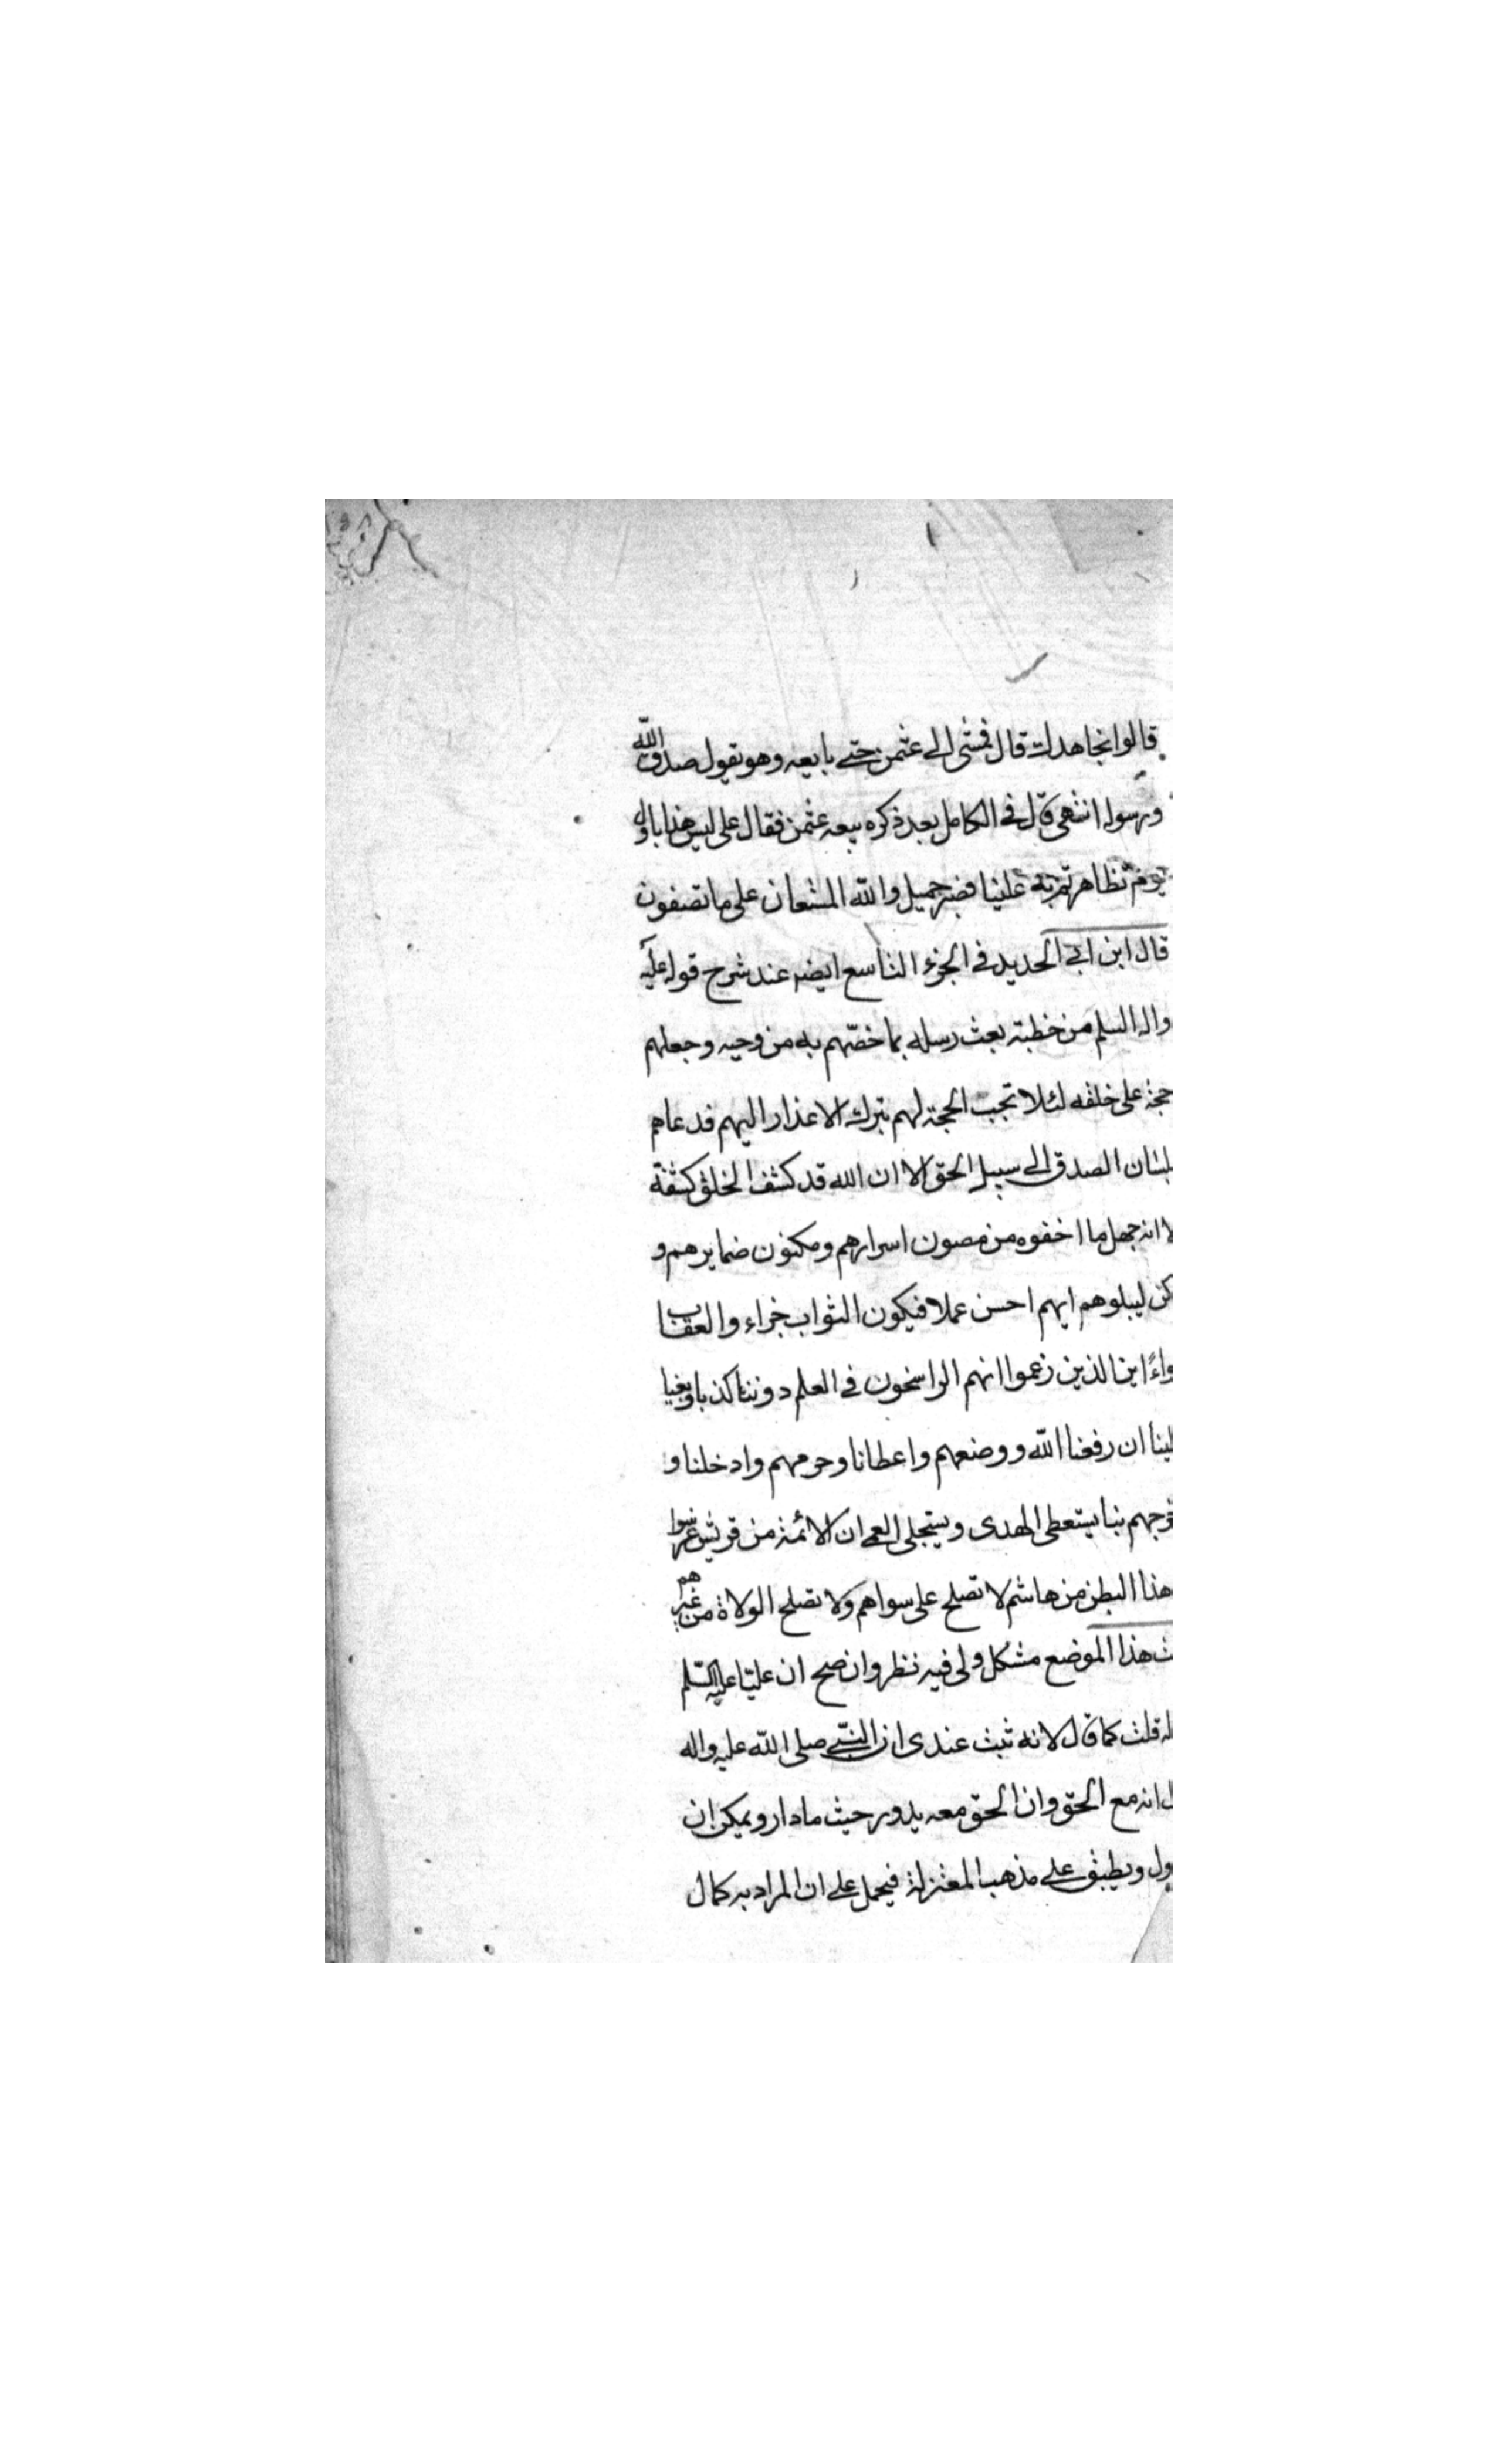 قالوا نجاهدك قال فمشى الى عثمن حتى بايعه وهو يقول صدق الله
ورسوله انتهى قال في الكامل بعد ذكره بيعه عثمن فقال على ليس هذا باول
يوم تظاهرتم به علينا فصبر جميل والله المستعان على ما تصفون
قال ابن ابى الحديد في الجزء التاسع ايضه عند شرح قوله عليه
واله السلم من خطبته بعث رسله بما خصّهم به من وحيه وجعلهم
حجة على خلقه لئلا تجب الحجة لهم بترك الاعذار اليهم فدعاهم
بلسان الصدق الى سبيل الحق الا ان الله قد كشف الخلق كشفة
لا انه جهل ما اخفوه من مصون اسرارهم ومكنون ضمايرهم و
كن ليبلوهم ايهم احسن عملا فيكون الثواب جزاء والعقاب
واءً اين الذين زعموا انهم الراسخون في العلم دوننا كذبا وبغيا
لينا ان رفعنا الله ووضعهم واعطانا وحرمهم وادخلنا و
خرجهم بنا يستعطى الهدى ويستجلى العمى ان الائمة من قريش غرسوا
هذا البطن من هاشم لا تصلح على سواهم ولا تصلح الولاة من غيرهم
ت هذا الموضع مشكل ولى فيه نظر وان صح ان عليّا عليه السّلم
له قلت كما قال لانه ثبت عندى ان النبّى صلى الله عليه واله
ل انه مع الحق وان الحق معه يدور حيث ما دار ويمكن ان
ول ويطبق على مذهب المعتزلة فيحمل على ان المراد به كمال